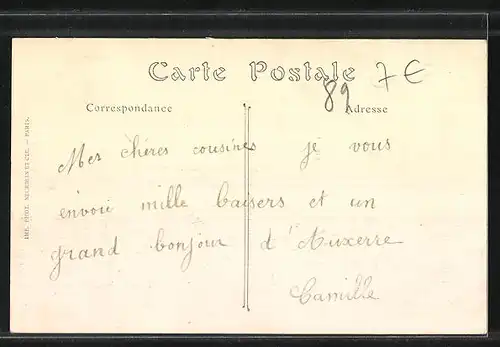 Carte Postale 7€
89
Correspondance Adresse
Mes chères cousines je vous
envoie mille baisers et un
grand bonjour d'Auxerre
Camille
IMP. PHOT. NEURDEIN ET CIE. — PARIS.